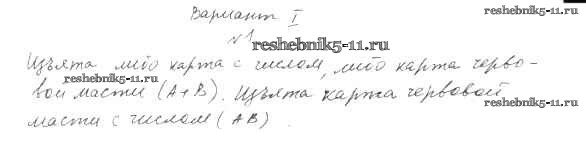 Вариант I
reshebnik5-11.ru
№1
reshebnik5-11.ru
Изъята либо карта с числом, либо карта черво-
reshebnik5-11.ru
вой масти (А+В). Изъята карта червовой
reshebnik5-11.ru
масти с числом (АВ).